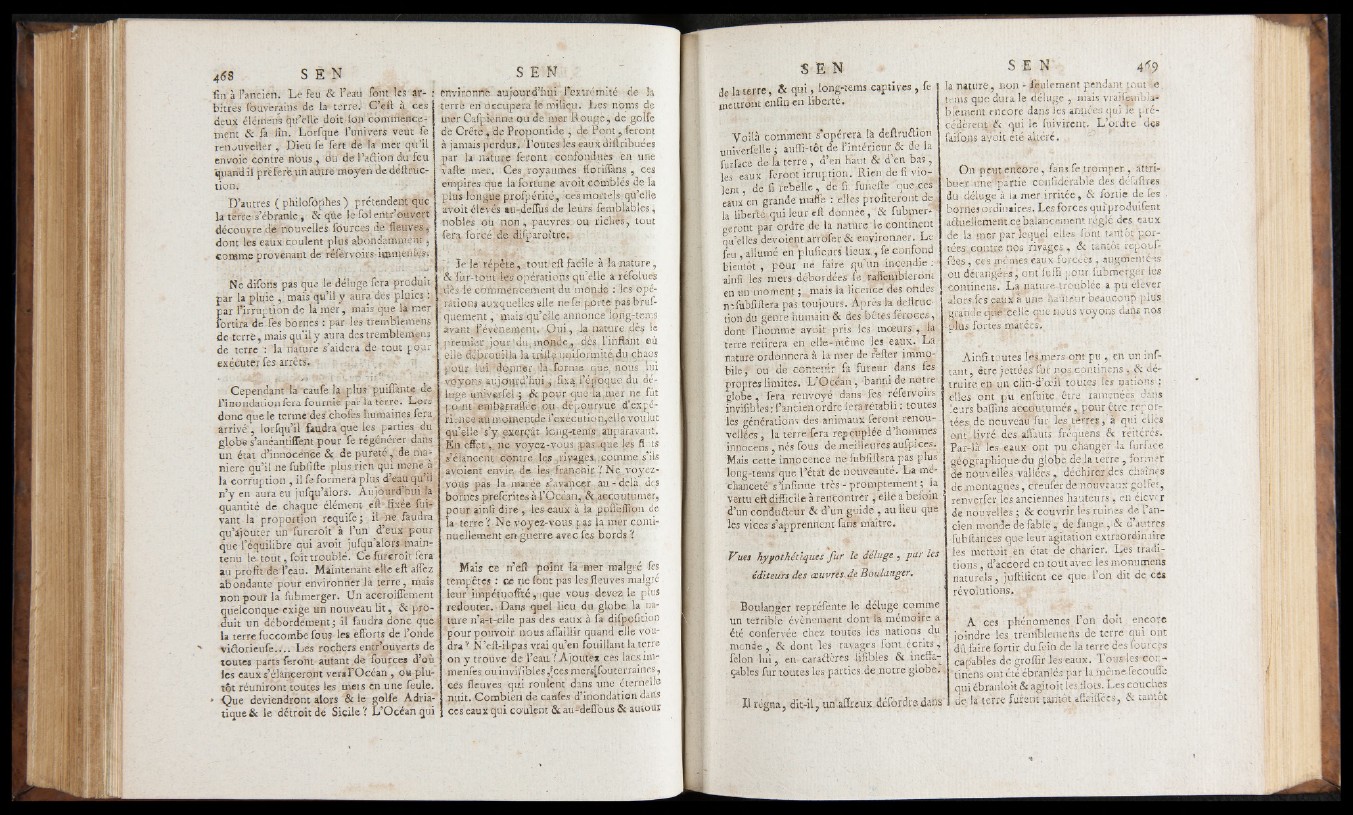 468 SEN SEN
fin à l'ancien. Le feu & l'eau font les ar-
bitres fouverains de la terre. C'eft à ces
deux élémens qu'elle doit fon commence-
ment & fa fin. Lorfque l'univers veut fe
renouveller, Dieu fe fert de la mer qu'il
envoie contre nous, ou de l'action du feu
quand il préfere un autre moyen de deftruc-
tion.
D'autres (philofophes) prétendent que
la terre s'ébranle, & que le fol entr'ouvert
découvre de nouvelles fources de fleuves,
dont les eaux coulent plus abondamment,
comme provenant de réfervoirs immenfes.
Ne difons pas que le déluge fera produit
par la pluie, mais qu'il y aura des pluies :
par l'irruption de la mer, mais que la mer
fortira de fes bornes : par les tremblemens
de terre, mais qu'il y aura des tremblemens
de terre : la nature s'aidera de tout pour
exécuter fes arrêts.
Cependant la caufe la plus puiffante de
l'inondation fera fournie par la terre. Lors
donc que le terme des chofes humaines fera
arrivé, lorfqu'il faudra que les parties du
globe s'anéantiffent pour fe régénérer dans
un état d'innocence & de pureté, de ma-
niere qu'il ne fubfifte plus rien qui mene à
la corruption, il fe formera plus d'eau qu'il
n'y en aura eu jufqu'alors. Aujourd'hui la
quantité de chaque élément eft fixée fui-
vant la proportion requife ; il ne faudra
qu'ajouter un furcroît à l'un d'eux pour
que l'équilibre qui avoit jufqu'alors main-
tenu le tout, foit troublé. Ce furcroît fera
au profit de l'eau. Maintenant elle eft affez
abondante pour environner la terre, mais
non pour la fubmerger. Un accroiffement
quelconque exige un nouveau lit, & pro-
duit un débordement ; il faudra donc que
la terre fuccombe fous les efforts de l'onde
victorieufe.... Les rochers entr'ouverts de
toutes parts feront autant de fources d'où
les eaux s'élanceront vers l'Océan, ou plu-
tôt réuniront toutes les mers en une feule.
Que deviendront alors & le golfe Adria-
tique & le détroit de Sicile ? L'Océan qui
environne aujourd'hui l'extrémité de la
terre en occupera le milieu. Les noms de
mer Cafpienne ou de mer Rouge, de golfe
de Crête, de Propontide, de Pont, feront
à jamais perdus. Toutes les eaux diftribuées
par la nature feront confondues en une
vafte mer. Ces royaumes floriffans, ces
empires que la fortune avoit comblés de la
plus longue profpérité, ces mortels qu'elle
avoit élevés au-deffus de leurs femblables,
nobles ou non, pauvres ou riches, tout
fera forcé de difparoître.
Je le répète, tout eft facile à la nature,
& fur-tout les opérations qu'elle a réfolues
dès le commencement du monde : les opé-
rations auxquelles elle ne fe porte pas bruf-
quement, mais qu'elle annonce long-tems
avant l'évènement. Oui, la nature dès le
premier jour du monde, dès l'inftant où
elle débrouilla la trifte uniformité du chaos
pour lui donner la forme que nous lui
voyons aujourd'hui, fixa l'époque du dé-
luge univerfel ; & pour que la mer ne fut
point embarraffée ou dépourvue d'expé-
rience au moment de l'exécution, elle voulut
qu'elle s'y exerçât long-tems auparavant.
En effet, ne voyez-vous pas que les flots
s'élancent contre les rivages, comme s'ils
avoient envie de les franchir ? Ne voyez-
vous pas la marée s'avancer au-delà des
bornes prefcrites à l'Océan, & accoutumer,
pour ainfi dire, les eaux à la poffeffion de
la terre ? Ne voyez-vous pas la mer conti-
nuellement en guerre avec fes bords ?
Mais ce n'eft point la mer malgré fes
tempêtes : ce ne font pas les fleuves malgré
leur impétuofité, que vous devez le plus
redouter. Dans quel lieu du globe la na-
ture n'a-t-elle pas des eaux à fa difpofition
pour pouvoir nous affaillir quand elle vou-
dra ? N'eft-il pas vrai qu'en fouillant la terre
on y trouve de l'eau ? Ajoutez ces lacs im-
menfes ou invifibles, ces mers fouterraines,
ces fleuves qui roulent dans une éternelle
nuit. Combien de caufes d'inondation dans
ces eaux qui coulent & au-deffous & autour
SEN SEN 469
de la terre, & qui, long-tems captives, fe
mettront enfin en liberté.
Voilà comment s'opérera la deftruction
univerfelle ; auffi-tôt de l'intérieur & de la
furface de la terre, d'en haut & d'en bas,
les eaux feront irruption. Rien de fi vio-
lent, de fi rebelle, de fi funefte que ces
eaux en grande maffe : elles profiteront de
la liberté qui leur eft donnée, & fubmer-
geront par ordre de la nature le continent
qu'elles devoient arrofer & environner. Le
feu, allumé en plufieurs lieux, fe confond
bientôt, pour ne faire qu'un incendie :
ainfi les mers débordées fe raffembleront
en un moment ; mais la licence des ondes
ne fubfiftera pas toujours. Après la deftruc-
tion du genre humain & des bêtes féroces,
dont l'homme avoit pris les mœurs, la
terre retirera en elle-même les eaux. La
nature ordonnera à la mer de refter immo-
bile, ou de contenir fa fureur dans fes
propres limites. L'Océan, banni de notre
globe, fera renvoyé dans fes réfervoirs
invifibles : l'ancien ordre fera rétabli : toutes
les générations des animaux feront renou-
vellées, la terre fera repeuplée d'hommes
innocens, nés fous de meilleures aufpices.
Mais cette innocence ne fubfiftera pas plus
long-tems que l'état de nouveauté. La mé-
chanceté s'infinue très-promptement ; la
vertu eft difficile à rencontrer, elle a befoin
d'un conducteur & d'un guide, au lieu que
les vices s'apprennent fans maître.
Vues hypothétiques fur le déluge, par les
éditeurs des œuvres de Boulanger.
Boulanger repréfente le déluge comme
un terrible évènement dont la mémoire a
été confervée chez toutes les nations du
monde, & dont les ravages font écrits,
felon lui, en caractères lifibles & ineffa-
çables fur toutes les parties de notre globe.
Il régna, dit-il, un affreux défordre dans
la nature, non-feulement pendant tout le
tems que dura le déluge, mais vraifembla-
blement encore dans les années qui le pré-
cédèrent & qui le fuivirent. L'ordre des
faifons avoit été altéré.
On peut encore, fans fe tromper, attri-
buer une partie confidérable des défaftres
du déluge à la mer irritée, & fortie de fes
bornes ordinaires. Les forces qui produifent
actuellement ce balancement réglé des eaux
de la mer par lequel elles font tantôt por-
tées contre nos rivages, & tantôt repouf-
fées, ces mêmes eaux forcées, augmentées
ou dérangées, ont fuffi pour fubmerger les
continens. La nature troublée a pu élever
alors fes eaux à une hauteur beaucoup plus
grande que celle que nous voyons dans nos
plus fortes marées.
Ainfi toutes les mers ont pu, en un inf-
tant, être jettées fur nos continens, & dé-
truire en un clin-d'œil toutes les nations ;
elles ont pu enfuite être ramenées dans
leurs baffins accoutumés, pour être repor-
tées de nouveau fur les terres, à qui elles
ont livré des affauts fréquens & réitérés.
Par-là les eaux ont pu changer la furface
géographique du globe de la terre, former
de nouvelles vallées, déchirer des chaînes
de montagnes, creufer de nouveaux golfes,
renverfer les anciennes hauteurs, en élever
de nouvelles ; & couvrir les ruines de l'an-
cien monde de fable, de fange, & d'autres
fubftances que leur agitation extraordinaire
les mettoit en état de charier. Les tradi-
tions, d'accord en tout avec les monumens
naturels, juftifient ce que l'on dit de ces
révolutions.
A ces phénomenes l'on doit encore
joindre les tremblemens de terre qui ont
dû faire fortir du fein de la terre des fources
capables de groffir les eaux. Tous les con-
tinens ont été ébranlés par la même fecouffe
qui ébranloit & agitoit les flots. Les couches
de la terre furent tantôt affaiffées, & tantôt